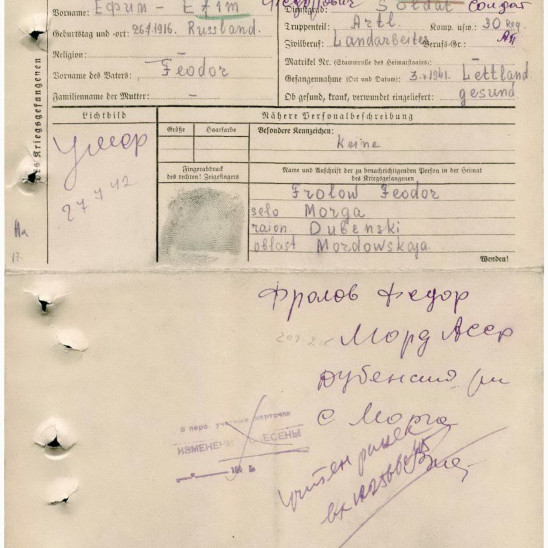 Vorname: Ефим - Efim
Dienstgrad: Soldat солдат
Geburtstag und -ort: 26.1.1916. Russland.
Truppenteil: Artl. Komp. usw.: 30 Reg.
Religion: —
Zivilberuf: Landarbeiter Berufs-Gr.:
Vorname des Vaters: Feodor
Matrikel Nr. (Stammrolle des Heimatstaates): —
Gefangennahme (Ort und Datum): Lettland
Familienname der Mutter: —
Ob gesund, krank, verwundet eingeliefert: gesund
des Kriegsgefangenen
Lichtbild
Nähere Personalbeschreibung
Größe
Haarfarbe
Besondere Kennzeichen:
keine
умер
Fingerabdruck
des rechten! Zeigefingers
Name und Anschrift der zu benachrichtigenden Person in der Heimat
des Kriegsgefangenen
27 7 42
Frolow Feodor
selo Morga
raion Dubenski
oblast Mordowskaja
Wenden!
Фролов Федор
Морд Асср
Дубенский
с Морга
ИЗМЕНЕНИЯ
учтен